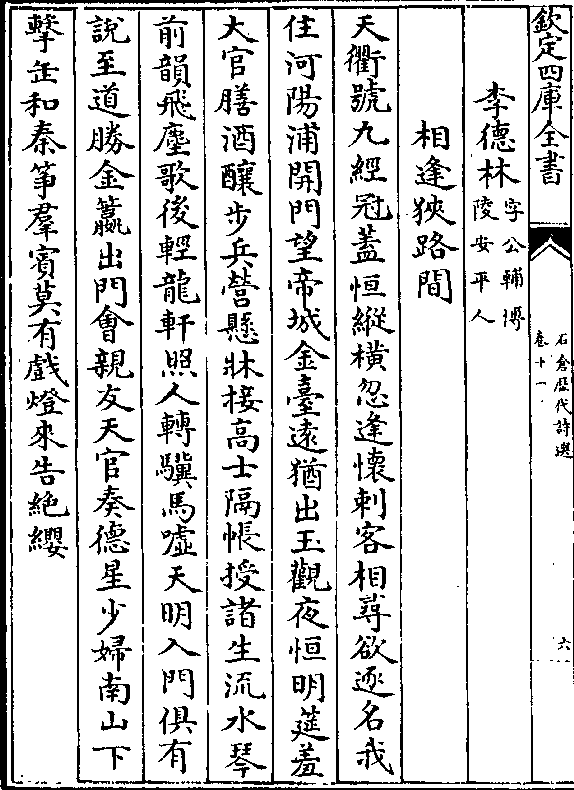 欽定四庫全書
石倉歷代詩選
卷十一
六
李德林字公輔博
陵安平人
相逢狹路間
天衢號九經冠蓋恒縱橫忽逢懷刺客相尋欲逐名我
住河陽浦開門望帝城金臺逺猶出玉觀夜恒明筵羞
大官膳酒釀步兵營懸牀接高士隔帳授諸生流水琴
前韻飛塵歌後輕龍軒照人轉驥馬噓天明入門俱有
說至道勝金籯出門會親友天官奏德星少婦南山下
擊缶和秦箏羣賓莫有戲燈來告絶纓